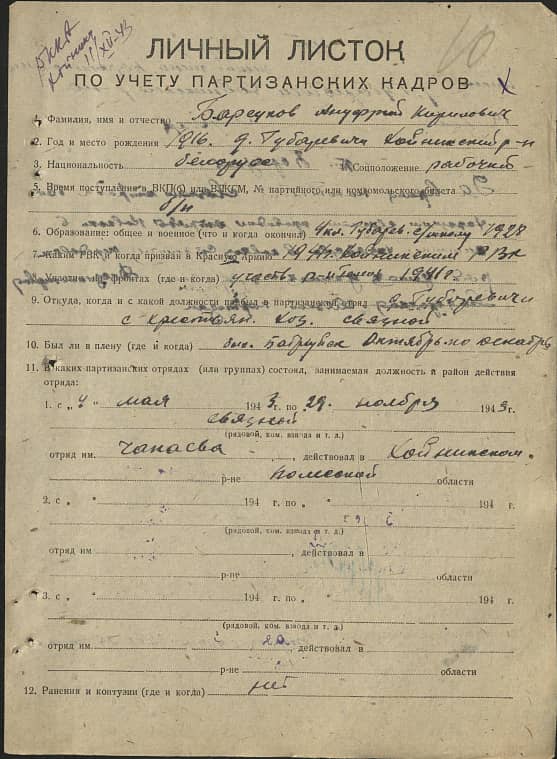 РККА
Хойники
11/XII-43
10
ЛИЧНЫЙ ЛИСТОК
ПО УЧЕТУ ПАРТИЗАНСКИХ КАДРОВ
1. Фамилия, имя и отчество Барсуков Ануфрий Кирилович
2. Год и место рождения 1916. д. Губаревичи Хойникский р-н
3. Национальность белорус Соцположение рабочий
5. Время поступления в ВКП(б) или ВЛКСМ, № партийного или комсомольского билета
б/п
6. Образование: общее и военное (что и когда окончил) 4 кл. Губарев. с/школу 1928
7. Каким РВК и когда призван в Красную Армию 1941 г. Хойникским РВК
8. Участвовал в фронтах (где и когда) участв. 1941 г.
9. Откуда, и с какой должности прибыл в партизанский отряд д. Губаревичи
с крестьян. хоз. связной
10. Был ли в плену (где и когда) был. Бобруйск Октябрь по декабрь
11. В каких партизанских отрядах (или группах) состоял, занимаемая должность и район действия
отряда:
1. с „ 4 “ мая 1943 г. по 29. ноября 1943 г.
связной
(рядовой, ком. взвода и т. д.)
отряд им. Чапаева, действовал в Хойникском
р-не Полесской области
2. с „ “ 194 г. по „ “ 194 г.
(рядовой, ком. взвода и т. д.)
отряд им , действовал в
р-не области
3. с „ “ 194 г. по „ “ 194 г.
(рядовой, ком. взвода и т. д.)
отряд им действовал в
р-не области
12. Ранения и контузии (где и когда) нет